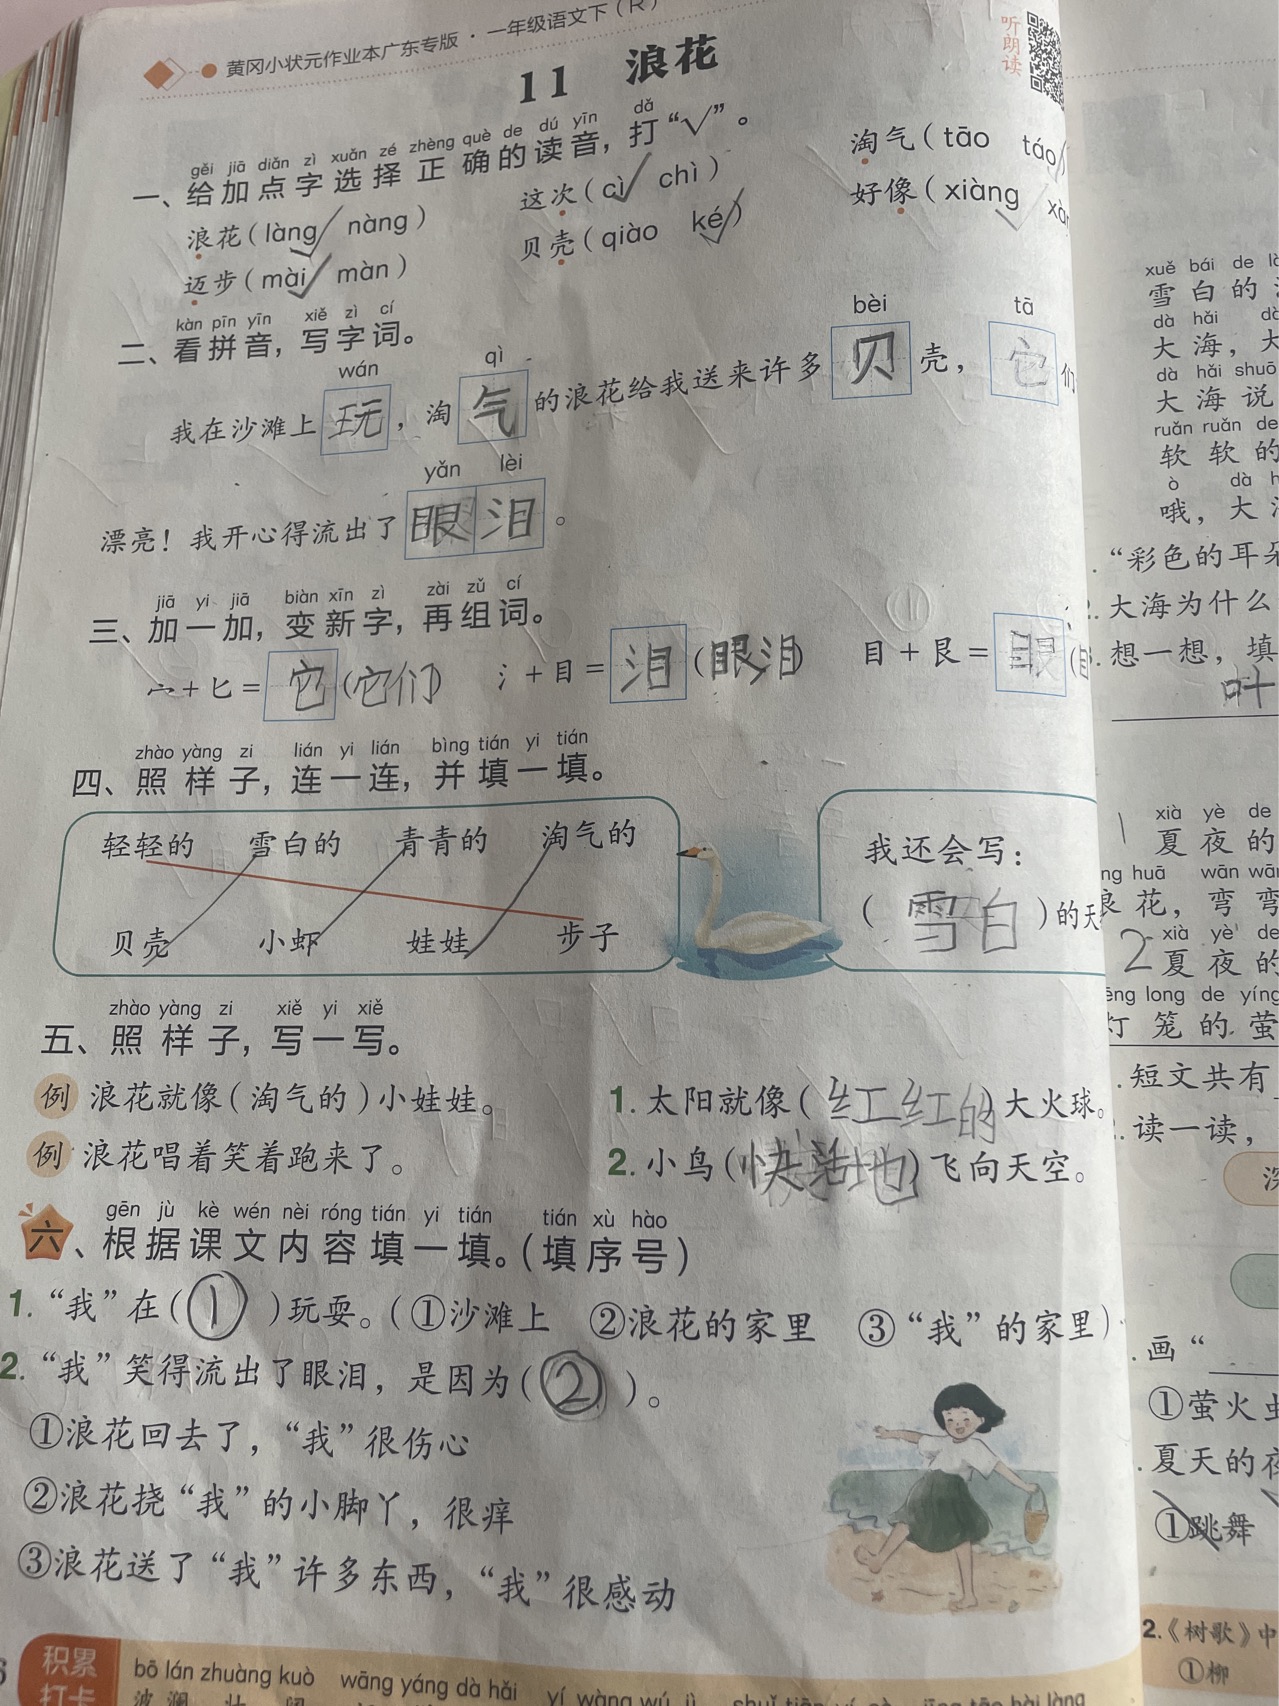 黄冈小状元作业本广东专版·一年级语文下（R）
听朗读
11 浪花
gěi jiā diǎn zì xuǎn zé zhèng què de dú yīn dǎ
一、给加点字选择正确的读音，打“√”。
浪花（làng√ nàng） 这次（cì√ chì） 淘气（tāo táo√
迈步（mài√ màn） 贝壳（qiào ké√） 好像（xiàng√
kàn pīn yīn xiě zì cí
二、看拼音，写字词。
wán qì bèi tā
我在沙滩上玩，淘气的浪花给我送来许多贝壳，它们
yǎn lèi
漂亮！我开心得流出了眼泪。
jiā yi jiā biàn xīn zì zài zǔ cí
三、加一加，变新字，再组词。
宀＋匕＝它（它们） 氵＋目＝泪（眼泪） 目＋艮＝眼（
zhào yàng zi lián yi lián bìng tián yi tián
四、照样子，连一连，并填一填。
轻轻的 雪白的 青青的 淘气的
贝壳 小虾 娃娃 步子
我还会写：
（雪白）的天
zhào yàng zi xiě yi xiě
五、照样子，写一写。
例 浪花就像（淘气的）小娃娃。
例 浪花唱着笑着跑来了。
1. 太阳就像（红红的大火球。
2. 小鸟（快活地）飞向天空。
gēn jù kè wén nèi róng tián yi tián tián xù hào
六、根据课文内容填一填。（填序号）
1. “我”在（①）玩耍。（①沙滩上 ②浪花的家里 ③“我”的家里）
2. “我”笑得流出了眼泪，是因为（②）。
①浪花回去了，“我”很伤心
②浪花挠“我”的小脚丫，很痒
③浪花送了“我”许多东西，“我”很感动
积累打卡
bō lán zhuàng kuò wāng yáng dà hǎi yí wàng wú jì
xuě bái de
雪白的
dà hǎi
大海，大
dà hǎi shuō
大海说
ruǎn ruǎn de
软软的
ò dà
哦，大
“彩色的耳朵
大海为什么
想一想，填
叶
1 xià yè de
夏夜的
huā wān wān
花，弯弯
2 xià yè de
夏夜的
long de yíng
笼的萤
短文共有
读一读，
画“
①萤火虫
夏天的夜
①跳舞
2.《树歌》中
①柳